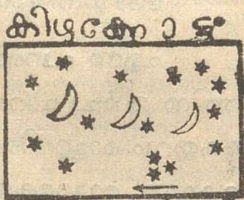 കിഴക്കോട്ടു